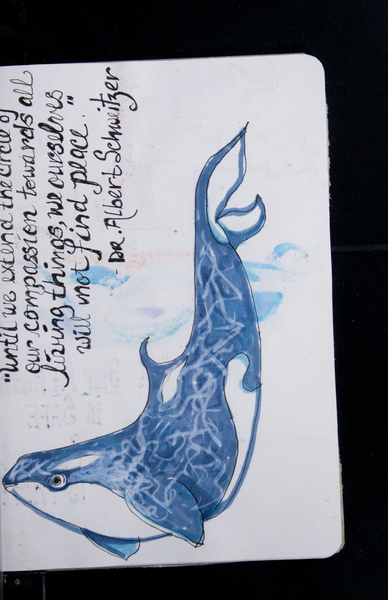 "Until we extend the circle of
our compassion towards all
living things, we ourselves
will not find peace."
- DR. Albert Schweitzer